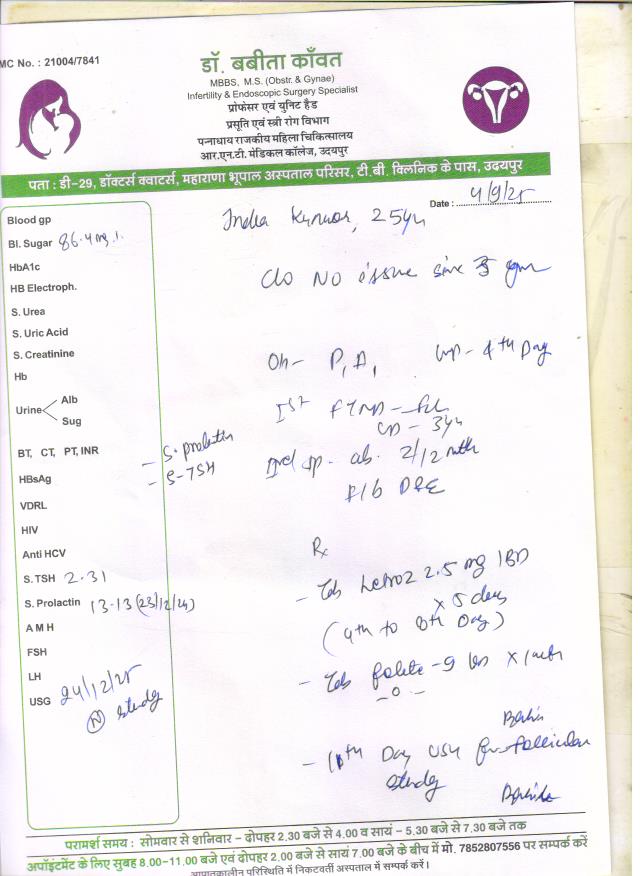 MC No. : 21004/7841
डॉ. बबीता काँवत
MBBS, M.S. (Obstr. & Gynae)
Infertility & Endoscopic Surgery Specialist
प्रोफेसर एवं युनिट हैड
प्रसूति एवं स्त्री रोग विभाग
पन्नाधाय राजकीय महिला चिकित्सालय
आर.एन.टी. मेडिकल कॉलेज, उदयपुर
पता : डी-29, डॉक्टर्स क्वाटर्स, महाराणा भूपाल अस्पताल परिसर, टी.बी. क्लिनिक के पास, उदयपुर
Date : 4/9/25
India Kunwar, 25yu
Blood gp
Bl. Sugar 86.4 mg
HbA1c
HB Electroph.
C/o No issue since 3 year
S. Urea
S. Uric Acid
S. Creatinine
O/H- P1A1 LMP- 4th Day
Hb
Urine Alb
Sug
Ist FTND
3yu
BT, CT, PT, INR
- S. prolactin
- S-TSH
HBsAg
IInd sp. ab. 2/12 mth
F/b D&E
VDRL
HIV
Anti HCV
Rx
- Tab Letroz 2.5 mg 1BD
x 5 days
(4th to 8th Day)
S. TSH 2.31
S. Prolactin 13.13 (23/12/24)
A M H
FSH
LH
USG 24/12/25
(N) study
- Tab folite x 1 mth
- 11th Day USG for follicular
study
परामर्श समय : सोमवार से शनिवार - दोपहर 2.30 बजे से 4.00 व सायं - 5.30 से 7.30 बजे तक
अपॉइंटमेंट के लिए सुबह 8.00-11.00 बजे एवं दोपहर 2.00 बजे से सायं 7.00 बजे के बीच में मो. 7852807556 पर सम्पर्क करें
आपातकालीन परिस्थिति में निकटवर्ती अस्पताल में सम्पर्क करें।